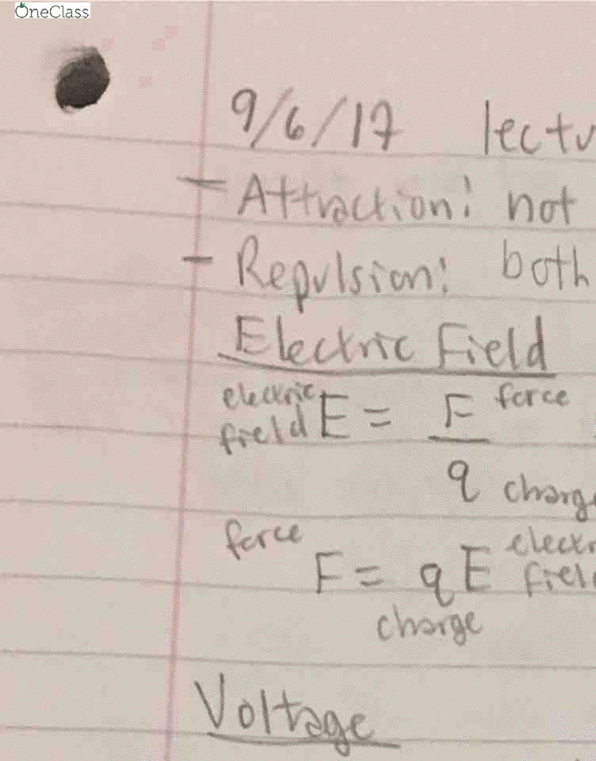 OneClass
9/6/17 lectu
- Attraction: not
- Repulsion: both
Electric Field
electric field E = F force
q charge
force
F = qE electr
charge field
Voltage